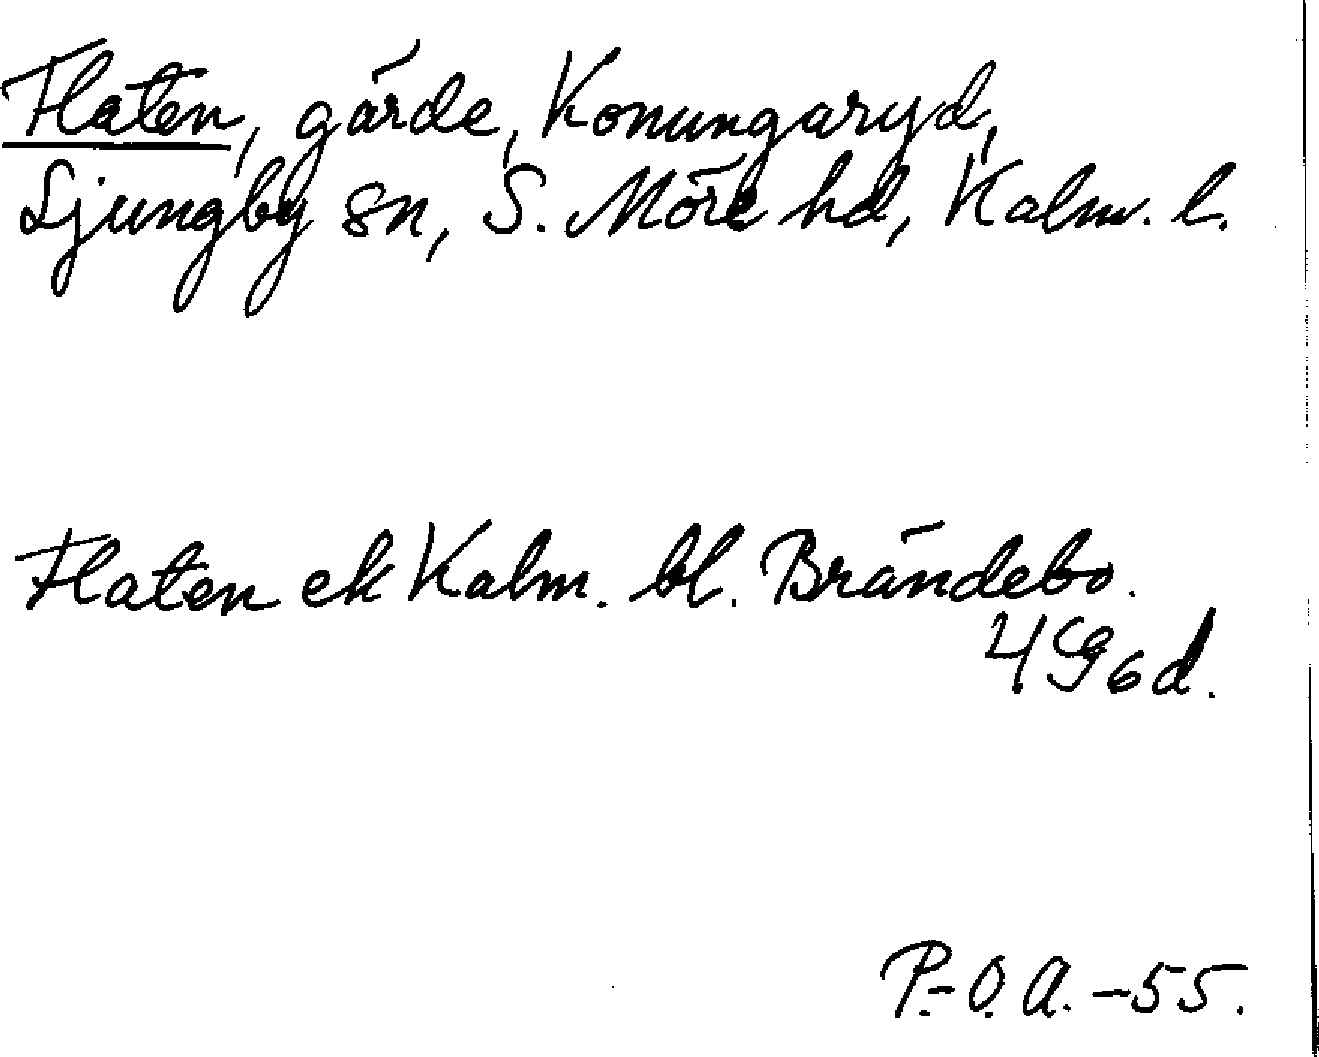 Flaten, gärde, Konungaryd,
Ljungby sn, S. Möre hd, Kalm. l.
Flaten ek Kalm. bl. Brändebo.
4G6d.
P.-O.A.-55.